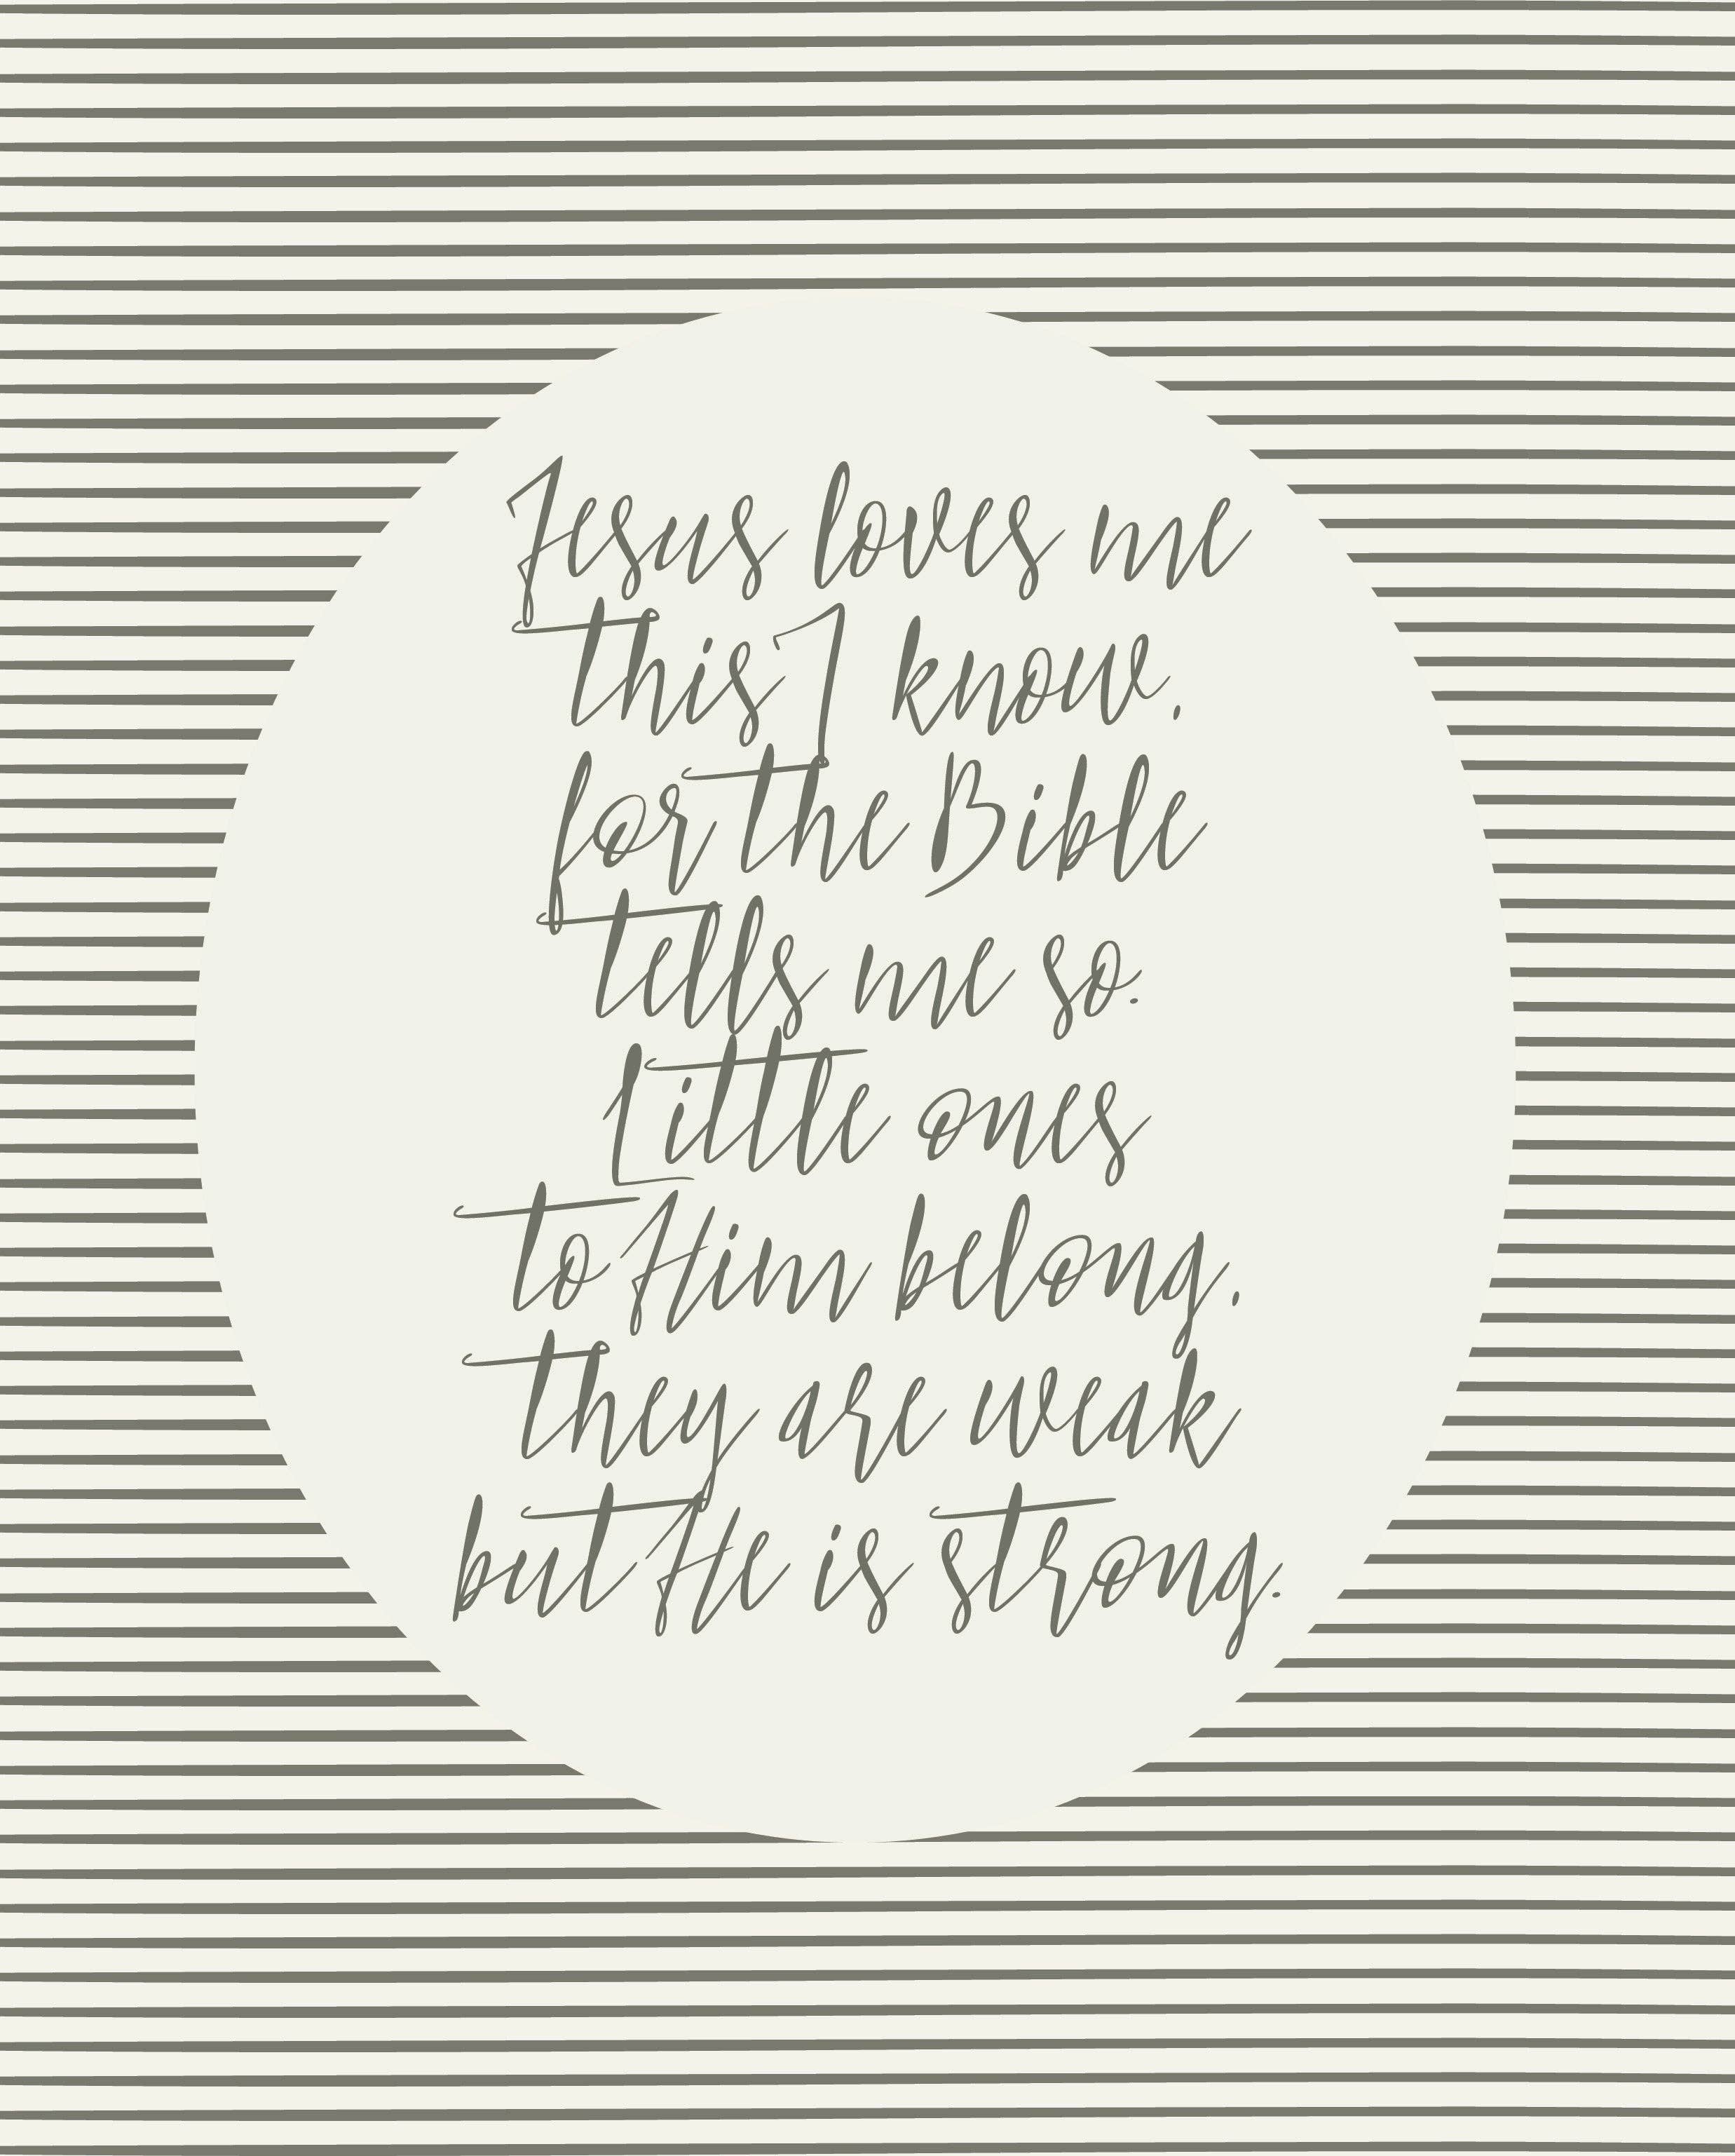 Jesus loves me
this I know,
for the Bible
tells me so.
Little ones
to Him belong,
they are weak
but He is strong.